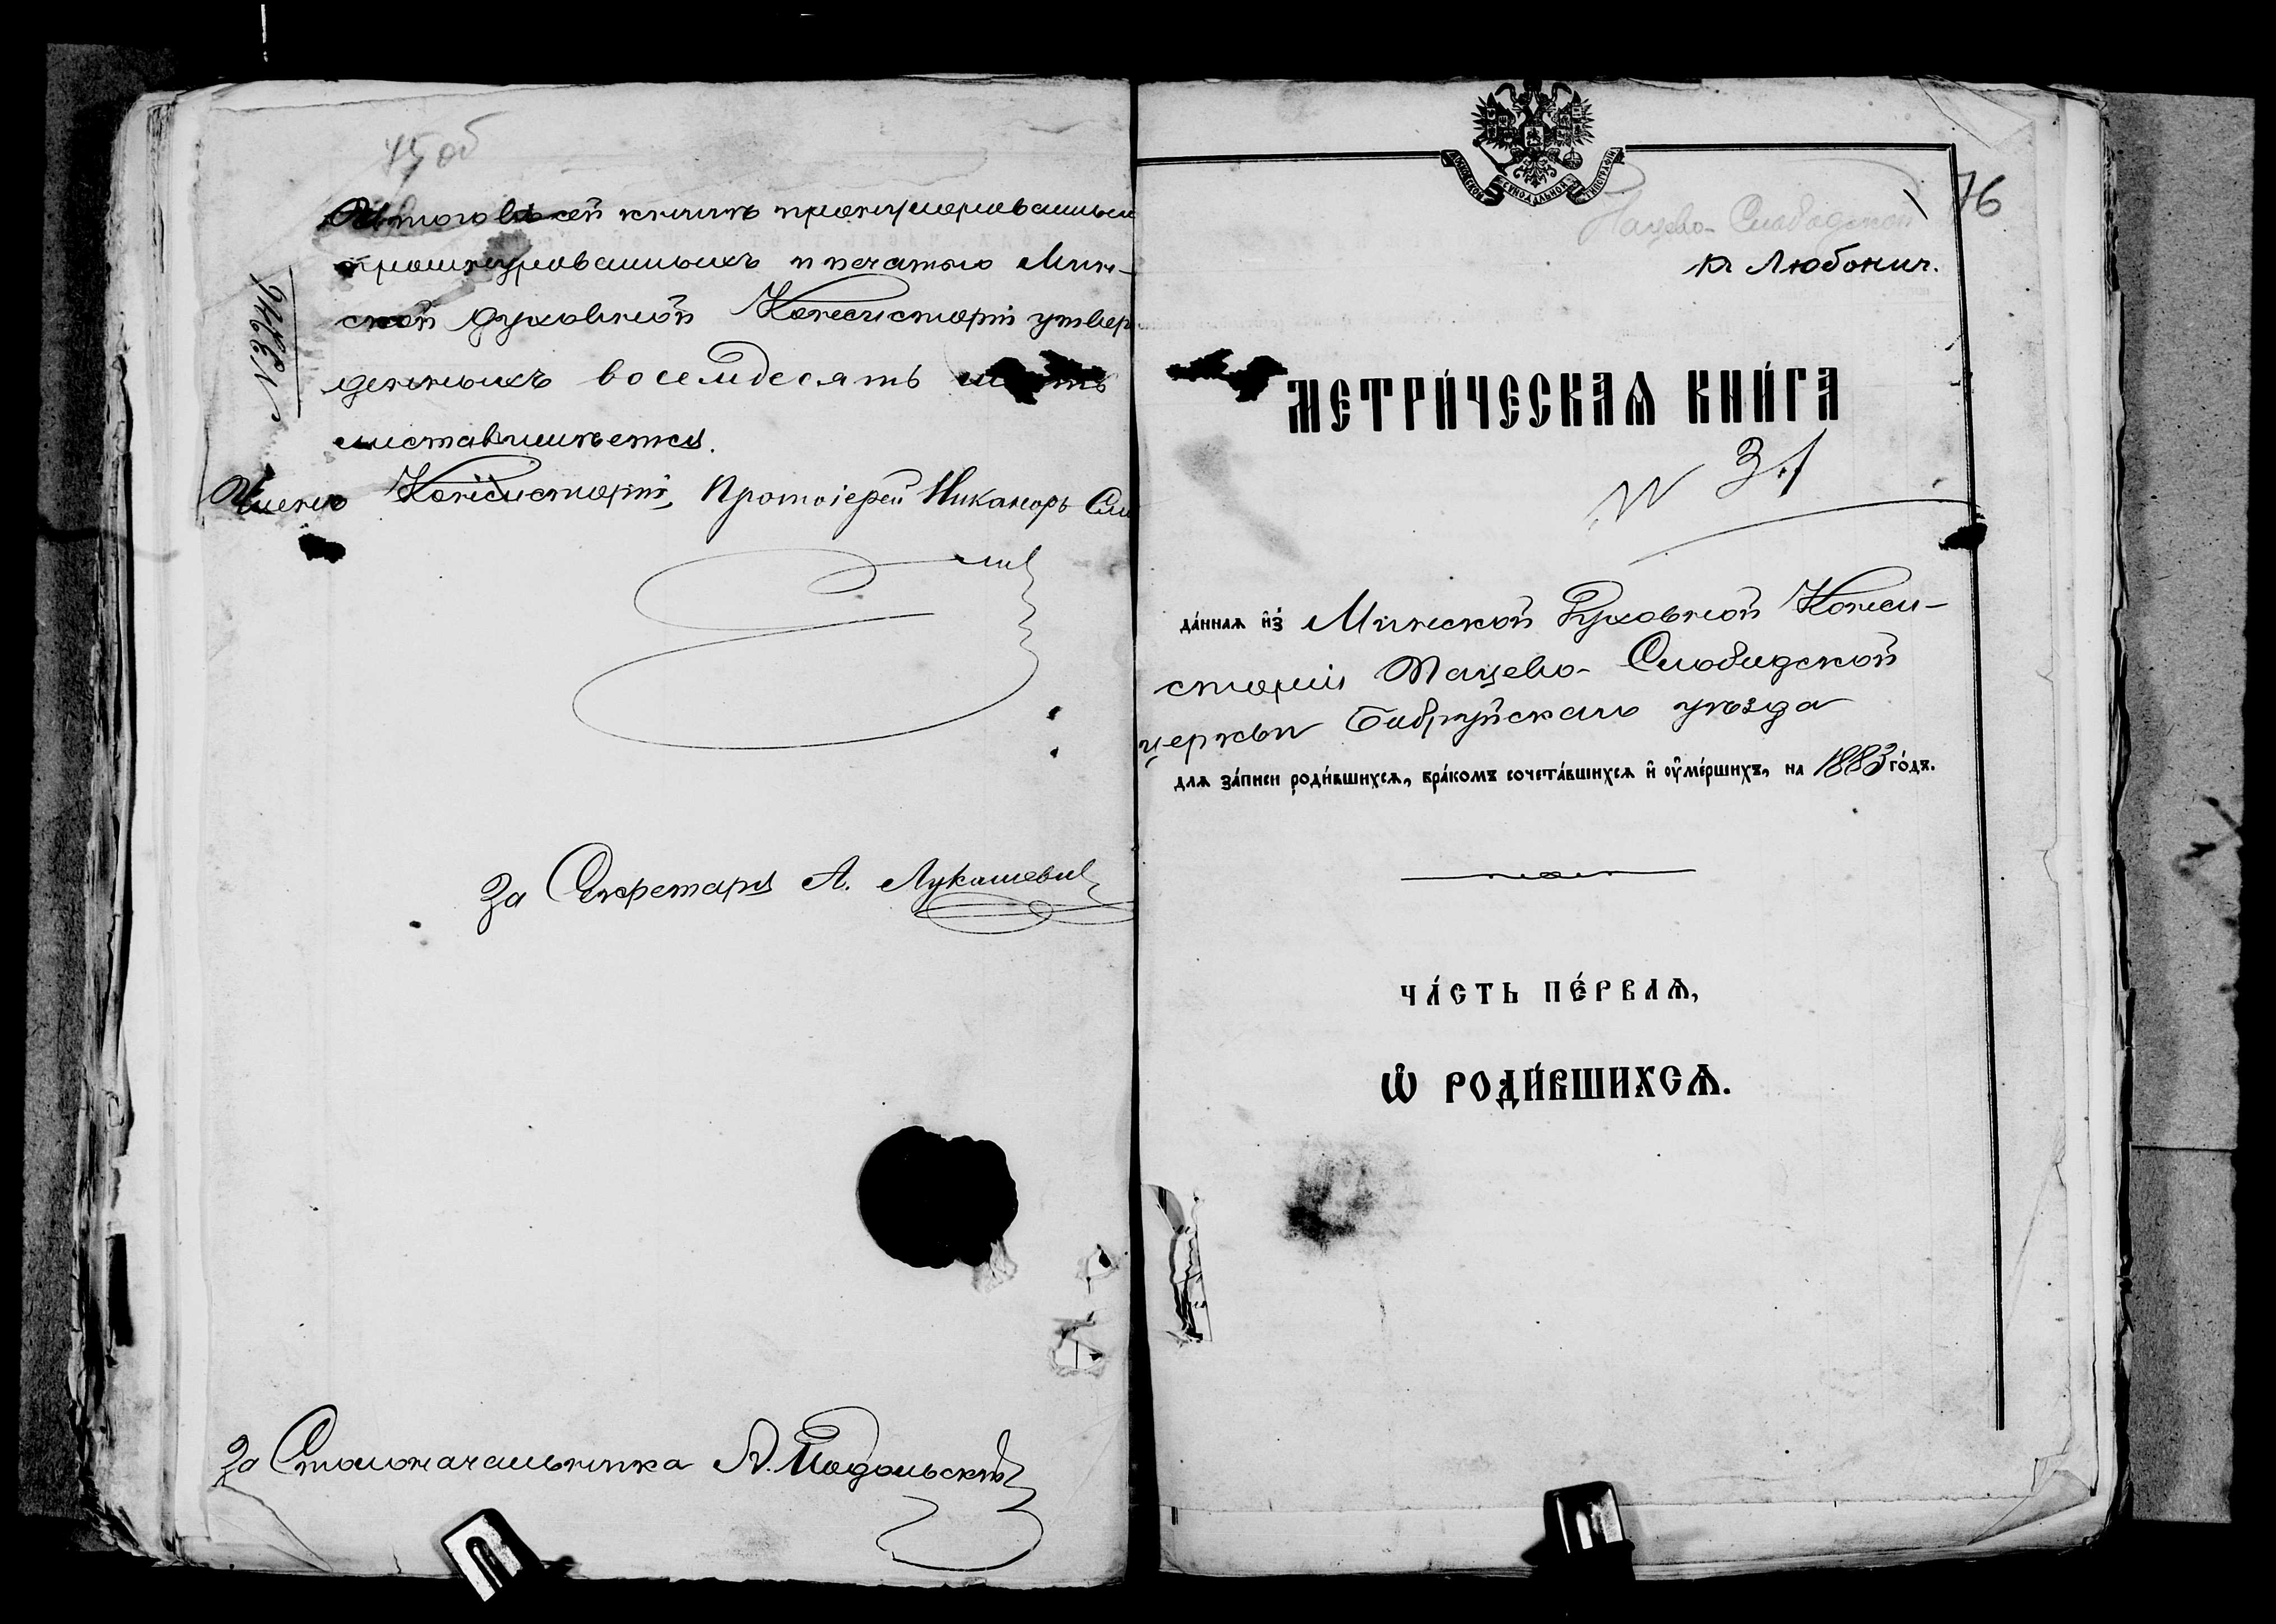 45 об
Итого въ сей книгѣ пронумерованныхъ
прошнурованныхъ и печатью Мин-
ской Духовной Консисторіи утвер
денныхъ восемдесятъ
листовъ имѣется.
Членъ Консисторіи, Протоіерей Никаноръ
За Секретаря А. Лукашевич
За Столоначальника А. Подольскій
76
Тацево-Слободской
к Любонич.
МЕТРИ́ЧЕСКАѦ КНИ́ГА
N 31
да́ннаѧ и҆з̾ Минской Духовной Конси-
сторіи Тацево-Слободской
церкви Бобруйскаго уѣзда
длѧ за́писи роди́вшихсѧ, бра́комъ сочета́вшихсѧ и҆ оу҆ме́ршихъ, на 1883 го́дъ.
ЧА́СТЬ ПЕ́РВАѦ,
Ѡ҆ РОДИ́ВШИХСѦ.